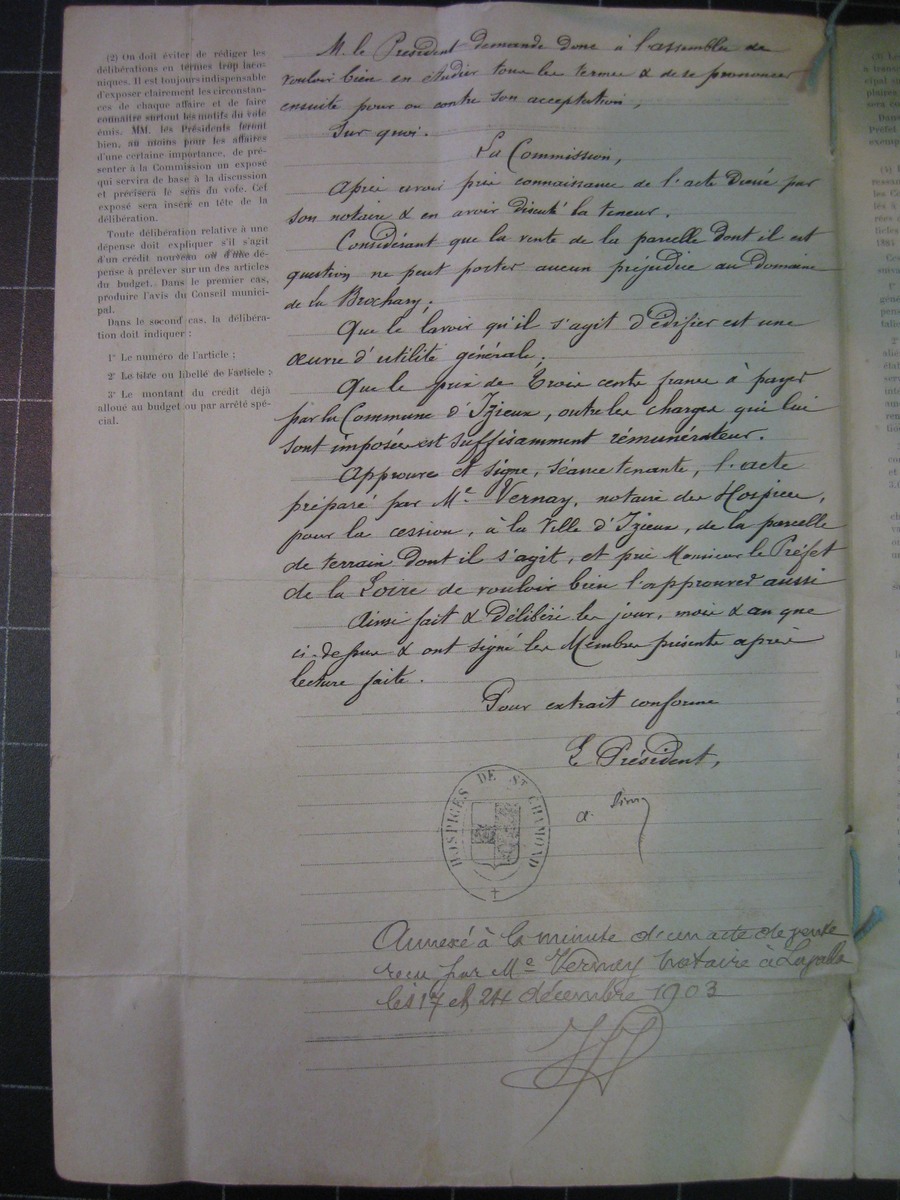 (2) On doit éviter de rédiger les
délibérations en termes trop laco-
niques. Il est toujours indispensable
d'exposer clairement les circonstan-
ces de chaque affaire et de faire
connaître surtout les motifs du vote
émis. MM. les Présidents feront
bien, au moins pour les affaires
d'une certaine importance, de pré-
senter à la Commission un exposé
qui servira de base à la discussion
et précisera le sens du vote. Cet
exposé sera inséré en tête de la
délibération.
Toute délibération relative à une
dépense doit expliquer s'il s'agit
d'un crédit nouveau ou d'une dé-
pense à prélever sur un des articles
du budget. Dans le premier cas,
produire l'avis du Conseil munici-
pal.
Dans le second cas, la délibéra-
tion doit indiquer :
1° Le numéro de l'article ;
2° Le titre ou libellé de l'article ;
3° Le montant du crédit déjà
alloué au budget ou par arrêté spé-
cial.
M. le Président demande donc à l'assemblée de
vouloir bien en étudier tous les termes & de se prononcer
ensuite pour ou contre son acceptation,
Sur quoi.
La Commission,
Après avoir pris connaissance de l'acte dressé par
son notaire & en avoir discuté la teneur.
Considérant que la vente de la parcelle dont il est
question, ne peut porter aucun préjudice au Domaine
de la Brochary ;
Que le lavoir qu'il s'agit d'édifier est une
œuvre d'utilité générale.
Que le prix de Trois cents francs à payer
par la Commune d'Izieux, outre les charges qui lui
sont imposées est suffisamment rémunérateur.
Approuve et signe, séance tenante, l'acte
préparé par Me Vernay, notaire des Hospices,
pour la cession, à la Ville d'Izieux, de la parcelle
de terrain dont il s'agit, et prie Monsieur le Préfet
de la Loire de vouloir bien l'approuver aussi
Ainsi fait & délibéré les jour, mois & an que
ci-dessus & ont signé les Membres présents après
lecture faite.
Pour extrait conforme
Le Président,
HOSPICES DE ST CHAMOND
Annexé à la minute d'un acte de vente
reçu par Me Vernay notaire à
les 17 et 24 décembre 1903